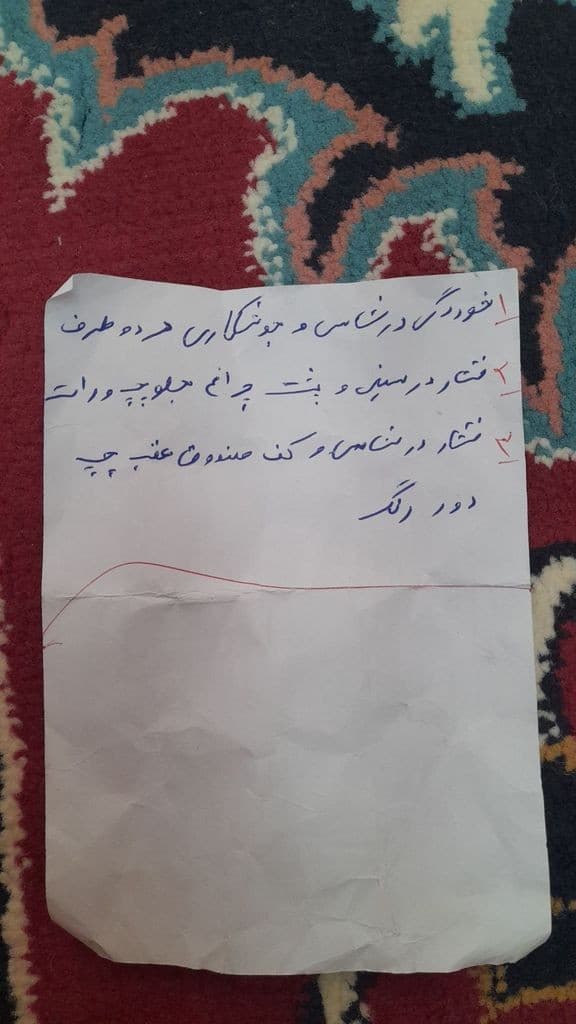 ۱ خوردگی در شاسی و جوشکاری هر دو طرف
۲ فشار در سینی و پشت چراغ جلو چپ و راست
۳ فشار در شاسی و کف صندوق عقب چپ
دور رنگ